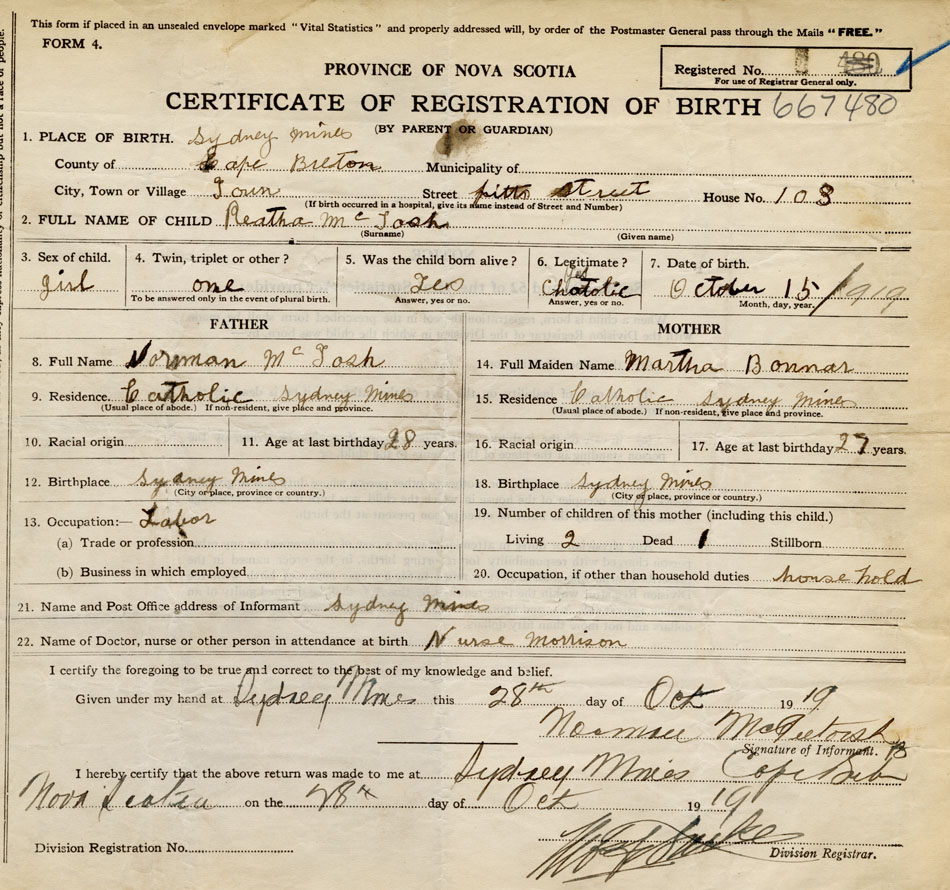 This form if placed in an unsealed envelope marked "Vital Statistics" and properly addressed will, by order of the Postmaster General pass through the Mails "FREE."
FORM 4.
Registered No. 480
For use of Registrar General only.
PROVINCE OF NOVA SCOTIA
CERTIFICATE OF REGISTRATION OF BIRTH 667480
(BY PARENT OR GUARDIAN)
1. PLACE OF BIRTH. Sydney Mines
County of Cape Breton Municipality of
City, Town or Village Town Street pitts street House No. 103
(If birth occurred in a hospital, give its name instead of Street and Number)
2. FULL NAME OF CHILD Reatha Mc Tosh
(Surname) (Given name)
3. Sex of child. 4. Twin, triplet or other? 5. Was the child born alive? 6. Legitimate? 7. Date of birth.
girl one Yes yes Chatolic October 15/1919
To be answered only in the event of plural birth. Answer, yes or no. Answer, yes or no. Month, day, year.
FATHER
8. Full Name Norman Mc Tosh
9. Residence. Catholic Sydney Mines
(Usual place of abode.) If non-resident, give place and province.
10. Racial origin 11. Age at last birthday 28 years.
12. Birthplace Sydney Mines
(City or place, province or country.)
13. Occupation:— Labor
(a) Trade or profession
(b) Business in which employed
MOTHER
14. Full Maiden Name Martha Bonnar
15. Residence Catholic Sydney Mines
(Usual place of abode.) If non-resident, give place and province.
16. Racial origin 17. Age at last birthday 27 years.
18. Birthplace Sydney Mines
(City or place, province or country.)
19. Number of children of this mother (including this child.)
Living 2 Dead 1 Stillborn
20. Occupation, if other than household duties house hold
21. Name and Post Office address of Informant Sydney Mines
22. Name of Doctor, nurse or other person in attendance at birth Nurse Morrison
I certify the foregoing to be true and correct to the best of my knowledge and belief.
Given under my hand at Sydney Mines this 28th day of Oct 1919
Norman
Signature of Informant.
I hereby certify that the above return was made to me at Sydney Mines Cape
Nova Scotia on the 28th day of Oct 1919
Division Registration No. Division Registrar.